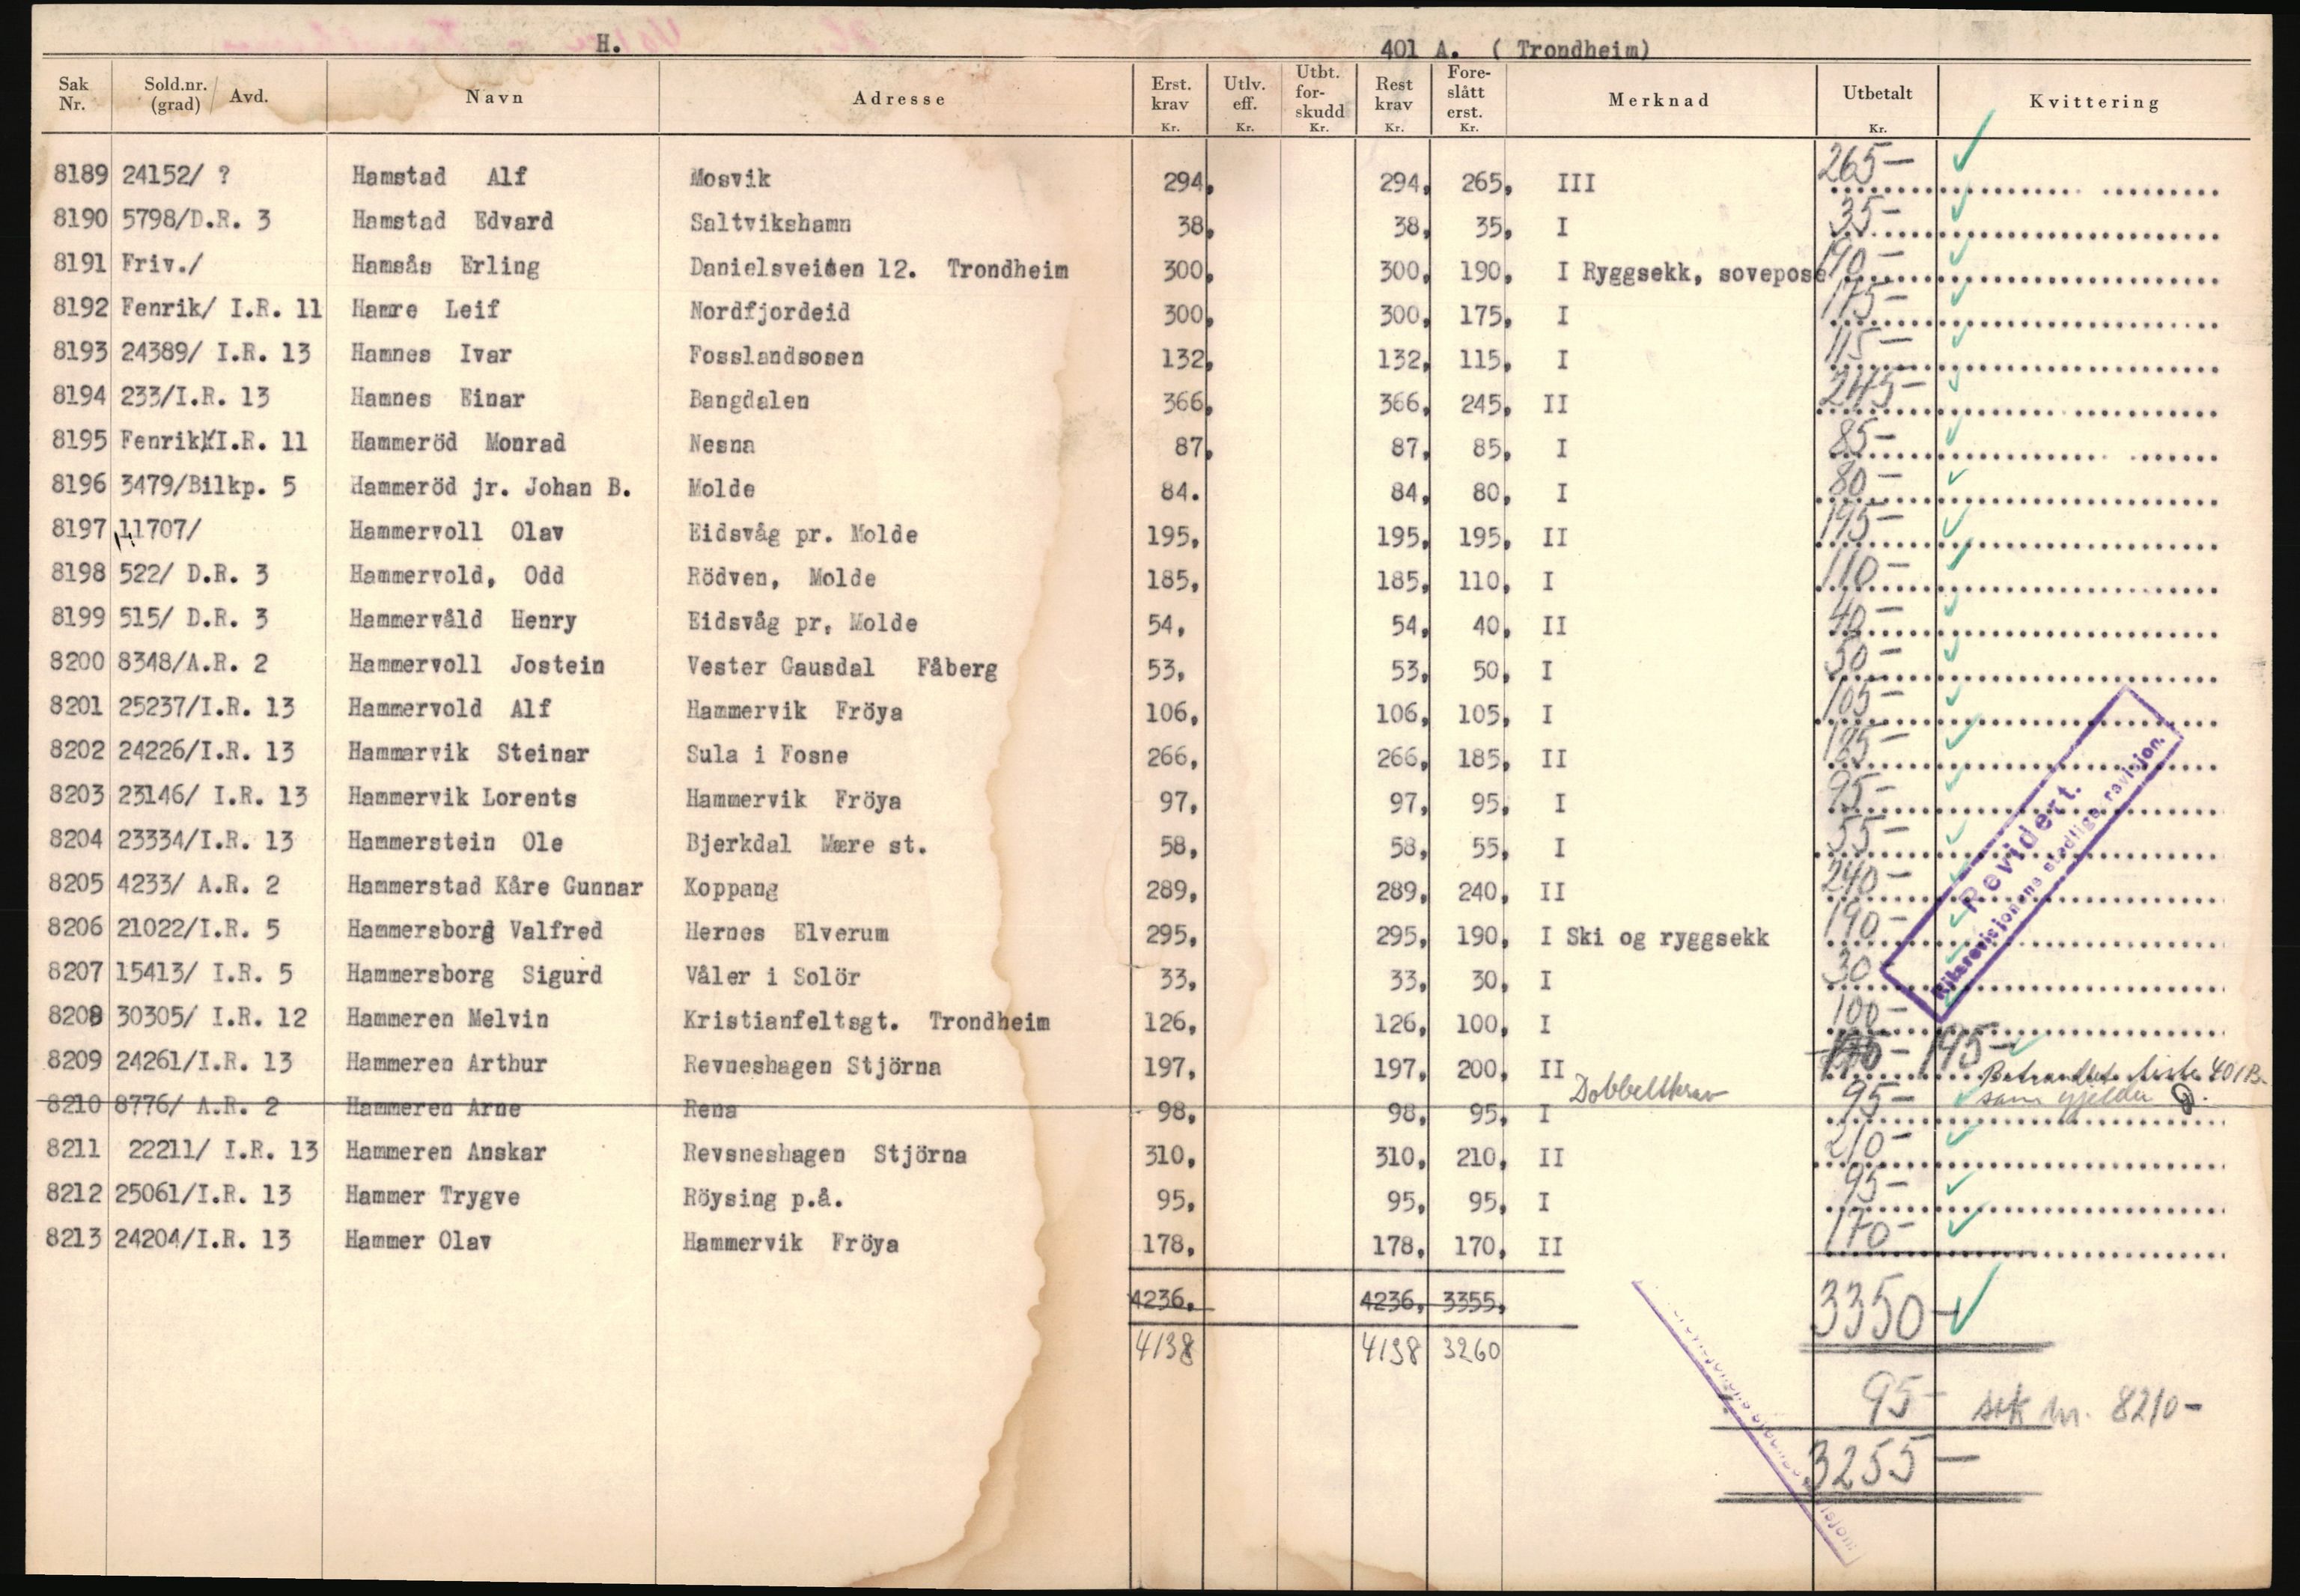 H. 401 A. ( Trondheim)
Sak Nr. Sold.nr. (grad) / Avd. Navn Adresse Erst. krav Kr. Utlv. eff. Kr. Utbt. for-skudd Kr. Rest krav Kr. Fore-slått erst. Kr. Merknad Utbetalt Kr. Kvittering
8189 24152/ ? Hamstad Alf Mosvik 294, 294, 265, III 265-
8190 5798/D.R. 3 Hamstad Edvard Saltvikshamn 38, 38, 35, I 35-
8191 Friv./ Hamsås Erling Danielsveien 12. Trondheim 300, 300, 190, I Ryggsekk, sovepose 190-
8192 Fenrik/ I.R. 11 Hamre Leif Nordfjordeid 300, 300, 175, I 175-
8193 24389/ I.R. 13 Hamnes Ivar Fosslandsosen 132, 132, 115, I 115-
8194 233/I.R. 13 Hamnes Einar Bangdalen 366, 366, 245, II 245-
8195 Fenrik/I.R. 11 Hammeröd Monrad Nesna 87, 87, 85, I 85-
8196 3479/Bilkp. 5 Hammeröd jr. Johan B. Molde 84. 84, 80, I 80-
8197 11707/ Hammervoll Olav Eidsvåg pr. Molde 195, 195, 195, II 195-
8198 522/ D.R. 3 Hammervold, Odd Rödven, Molde 185, 185, 110, I 110-
8199 515/ D.R. 3 Hammervåld Henry Eidsvåg pr. Molde 54, 54, 40, II 40-
8200 8348/A.R. 2 Hammervoll Jostein Vester Gausdal Fåberg 53, 53, 50, I 50-
8201 25237/I.R. 13 Hammervold Alf Hammervik Fröya 106, 106, 105, I 105-
8202 24226/I.R. 13 Hammarvik Steinar Sula i Fosne 266, 266, 185, II 185-
8203 23146/ I.R. 13 Hammervik Lorents Hammervik Fröya 97, 97, 95, I 95-
8204 23334/I.R. 13 Hammerstein Ole Bjerkdal Mære st. 58, 58, 55, I 55-
8205 4233/ A.R. 2 Hammerstad Kåre Gunnar Koppang 289, 289, 240, II 240-
8206 21022/I.R. 5 Hammersborg Valfred Hernes Elverum 295, 295, 190, I Ski og ryggsekk 190-
8207 15413/ I.R. 5 Hammersborg Sigurd Våler i Solör 33, 33, 30, I 30-
8208 30305/ I.R. 12 Hammeren Melvin Kristianfeltsgt. Trondheim 126, 126, 100, I 100-
8209 24261/I.R. 13 Hammeren Arthur Revneshagen Stjörna 197, 197, 200, II 195-
8210 8776/ A.R. 2 Hammeren Arne Rena 98, 98, 95, I Dobbeltkrav 95- liste 401B. som gjelder
8211 22211/ I.R. 13 Hammeren Anskar Revsneshagen Stjörna 310, 310, 210, II 210-
8212 25061/I.R. 13 Hammer Trygve Röysing p.å. 95, 95, 95, I 95-
8213 24204/I.R. 13 Hammer Olav Hammervik Fröya 178, 178, 170, II 170-
4236, 4236, 3355, 3350-
4138 4138 3260
95- sak nr. 8210-
3255-
Revidert.
Riksrevisjonens stedlige revisjon.